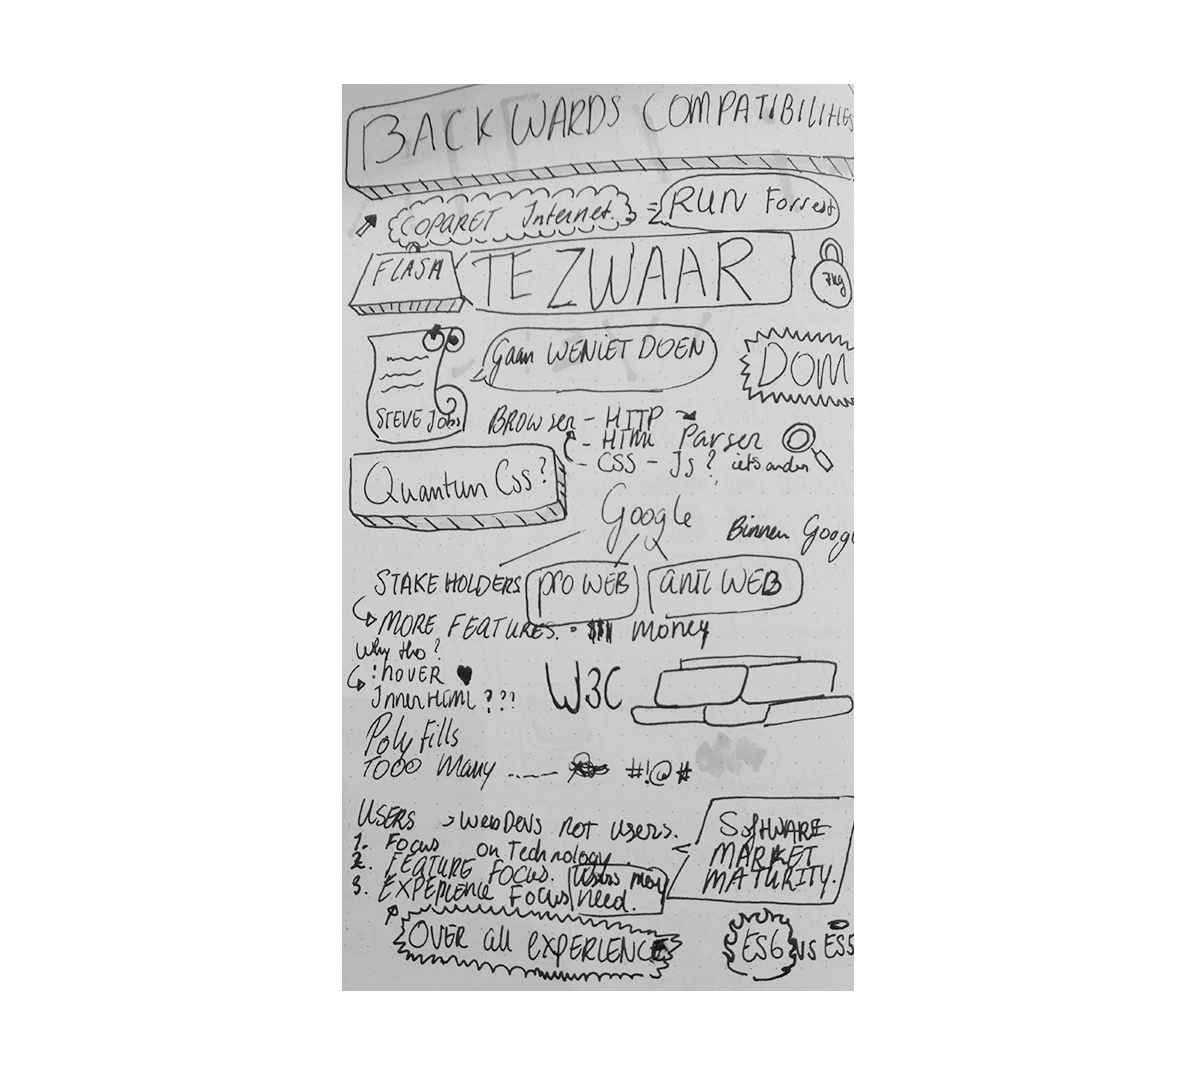 BACKWARDS COMPATIBILITIES
COPARET Internet. RUN Forrest
FLASH TE ZWAAR 7kg
Gaan WE NIET DOEN DOM
STEVE Jobs
BROWser - HTTP
- HTML Parser
- CSS - Js? iets anders
Quantum Css?
Google
Binnen Googl
STAKEHOLDERS pro WEB anti WEB
MORE FEATURES. $$$ money
Why tho?
:hOVER
InnerHTML???
W3C
Poly fills
TOOO Many ...... #!@#
USERS → WebDevs not users.
1. Focus on Technology
2. FEATURE FOCUS. Users may
3. EXPERIENCE Focus need.
SoftWARE
MARKET
MATURITY.
OVER all EXPERIENCES
ES6 vs ES5